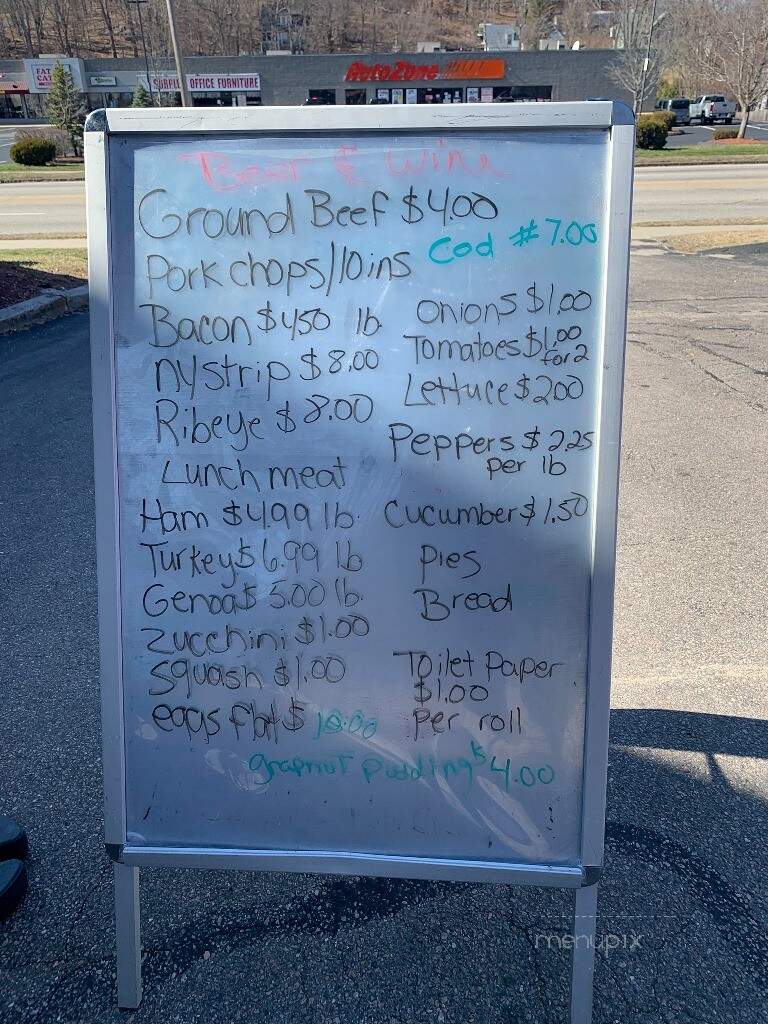 FAT
CAT
SURPLUS OFFICE FURNITURE
AutoZone
Beer & Wine
Ground Beef $4.00
Cod #7.00
Pork chops/10ins
Bacon $450 lb
ny strip $8.00
Ribeye $8.00
Lunch meat
Ham $4.99 lb
Turkey $6.99 lb
Genoa $ 5.00 lb
Zucchini $1.00
Squash $1.00
eggs flat $ 10.00
onions $1.00
Tomatoes $1.00
for 2
Lettuce $200
Peppers $ 2.25
per lb
Cucumber $1.50
Pies
Bread
Toilet Paper
$1.00
Per roll
grapnut pudding $4.00
menupix